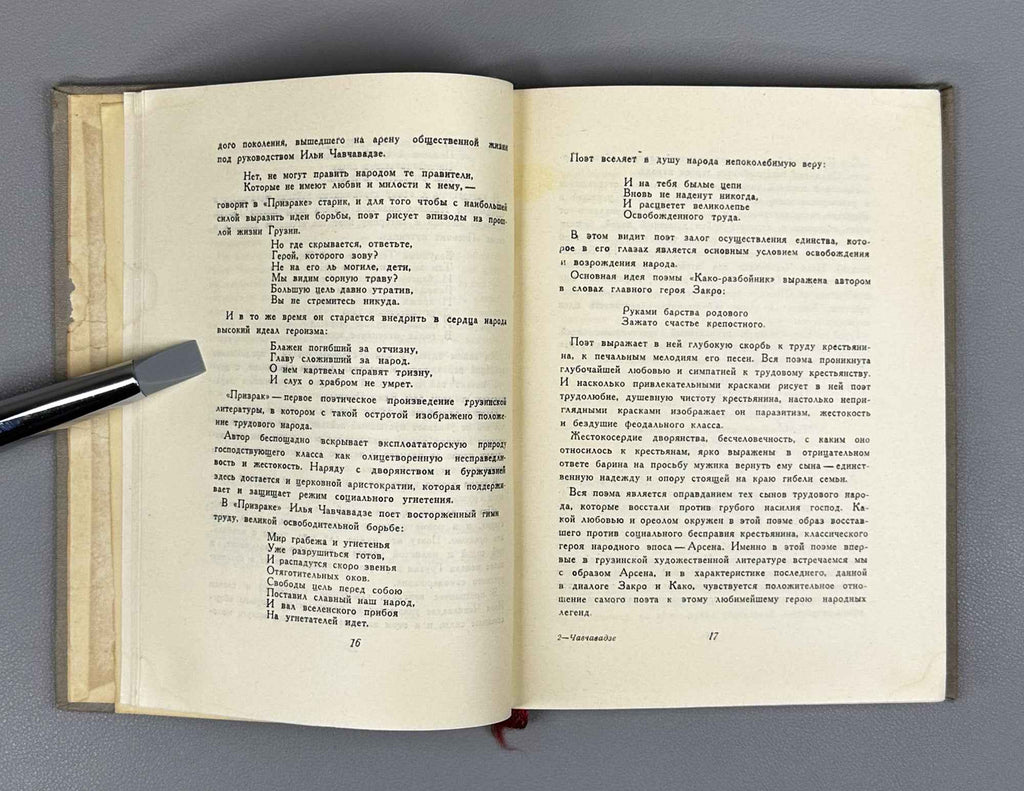 дого поколения, вышедшего на арену общественной жизни
под руководством Ильи Чавчавадзе.
Нет, не могут править народом те правители,
Которые не имеют любви и милости к нему, —
говорит в «Призраке» старик, и для того чтобы с наибольшей
силой выразить идеи борьбы, поэт рисует эпизоды из прош-
лой жизни Грузии.
Но где скрывается, ответьте,
Герой, которого зову?
Не на его ль могиле, дети,
Мы видим сорную траву?
Большую цель давно утратив,
Вы не стремитесь никуда.
И в то же время он старается внедрить в сердца народа
высокий идеал героизма:
Блажен погибший за отчизну,
Главу сложивший за народ.
О нем картвелы справят тризну,
И слух о храбром не умрет.
«Призрак» — первое поэтическое произведение грузинской
литературы, в котором с такой остротой изображено положе-
ние трудового народа.
Автор беспощадно вскрывает эксплоататорскую природу
господствующего класса как олицетворенную несправедли-
вость и жестокость. Наряду с дворянством и буржуазией
здесь достается и церковной аристократии, которая поддержи-
вает и защищает режим социального угнетения.
В «Призраке» Илья Чавчавадзе поет восторженный гимн
труду, великой освободительной борьбе:
Мир грабежа и угнетенья
Уже разрушиться готов,
И распадутся скоро звенья
Отяготительных оков.
Свободы цель перед собою
Поставил славный наш народ,
И вал вселенского прибоя
На угнетателей идет.
16
Поэт вселяет в душу народа непоколебимую веру:
И на тебя былые цепи
Вновь не наденут никогда,
И расцветет великолепье
Освобожденного труда.
В этом видит поэт залог осуществления единства, кото-
рое в его глазах является основным условием освобождения
и возрождения народа.
Основная идея поэмы «Како-разбойник» выражена автором
в словах главного героя Закро:
Руками барства родового
Зажато счастье крепостного.
Поэт выражает в ней глубокую скорбь к труду крестьяни-
на, к печальным мелодиям его песен. Вся поэма проникнута
глубочайшей любовью и симпатией к трудовому крестьянству.
И насколько привлекательными красками рисует в ней поэт
трудолюбие, душевную чистоту крестьянина, настолько непри-
глядными красками изображает он паразитизм, жестокость
и бездушие феодального класса.
Жестокосердие дворянства, бесчеловечность, с каким оно
относилось к крестьянам, ярко выражены в отрицательном
ответе барина на просьбу мужика вернуть ему сына — единст-
венную надежду и опору стоящей на краю гибели семьи.
Вся поэма является оправданием тех сынов трудового наро-
да, которые восстали против грубого насилия господ. Ка-
кой любовью и ореолом окружен в этой поэме образ восстав-
шего против социального бесправия крестьянина, классического
героя народного эпоса — Арсена. Именно в этой поэме впер-
вые в грузинской художественной литературе встречаемся мы
с образом Арсена, и в характеристике последнего, данной
в диалоге Закро и Како, чувствуется положительное отно-
шение самого поэта к этому любимейшему герою народных
легенд.
2—Чавчавадзе
17